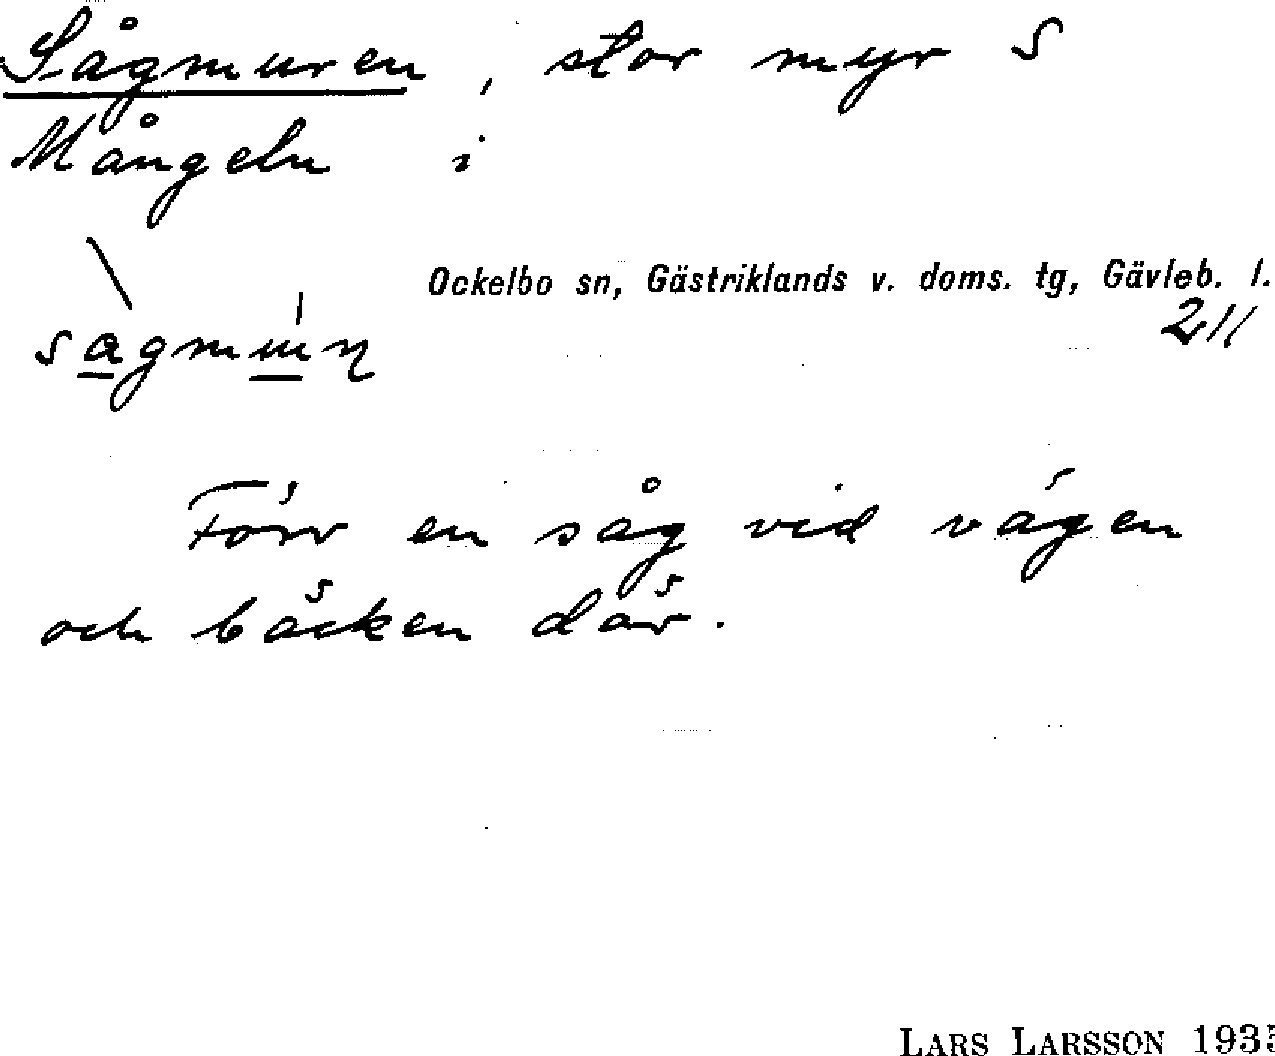 Sågmuren, stor myr S
Mångeln i
Ockelbo sn, Gästriklands v. doms. tg, Gävleb. l.
211
Förr en såg vid vägen
och bäcken där.
LARS LARSSON